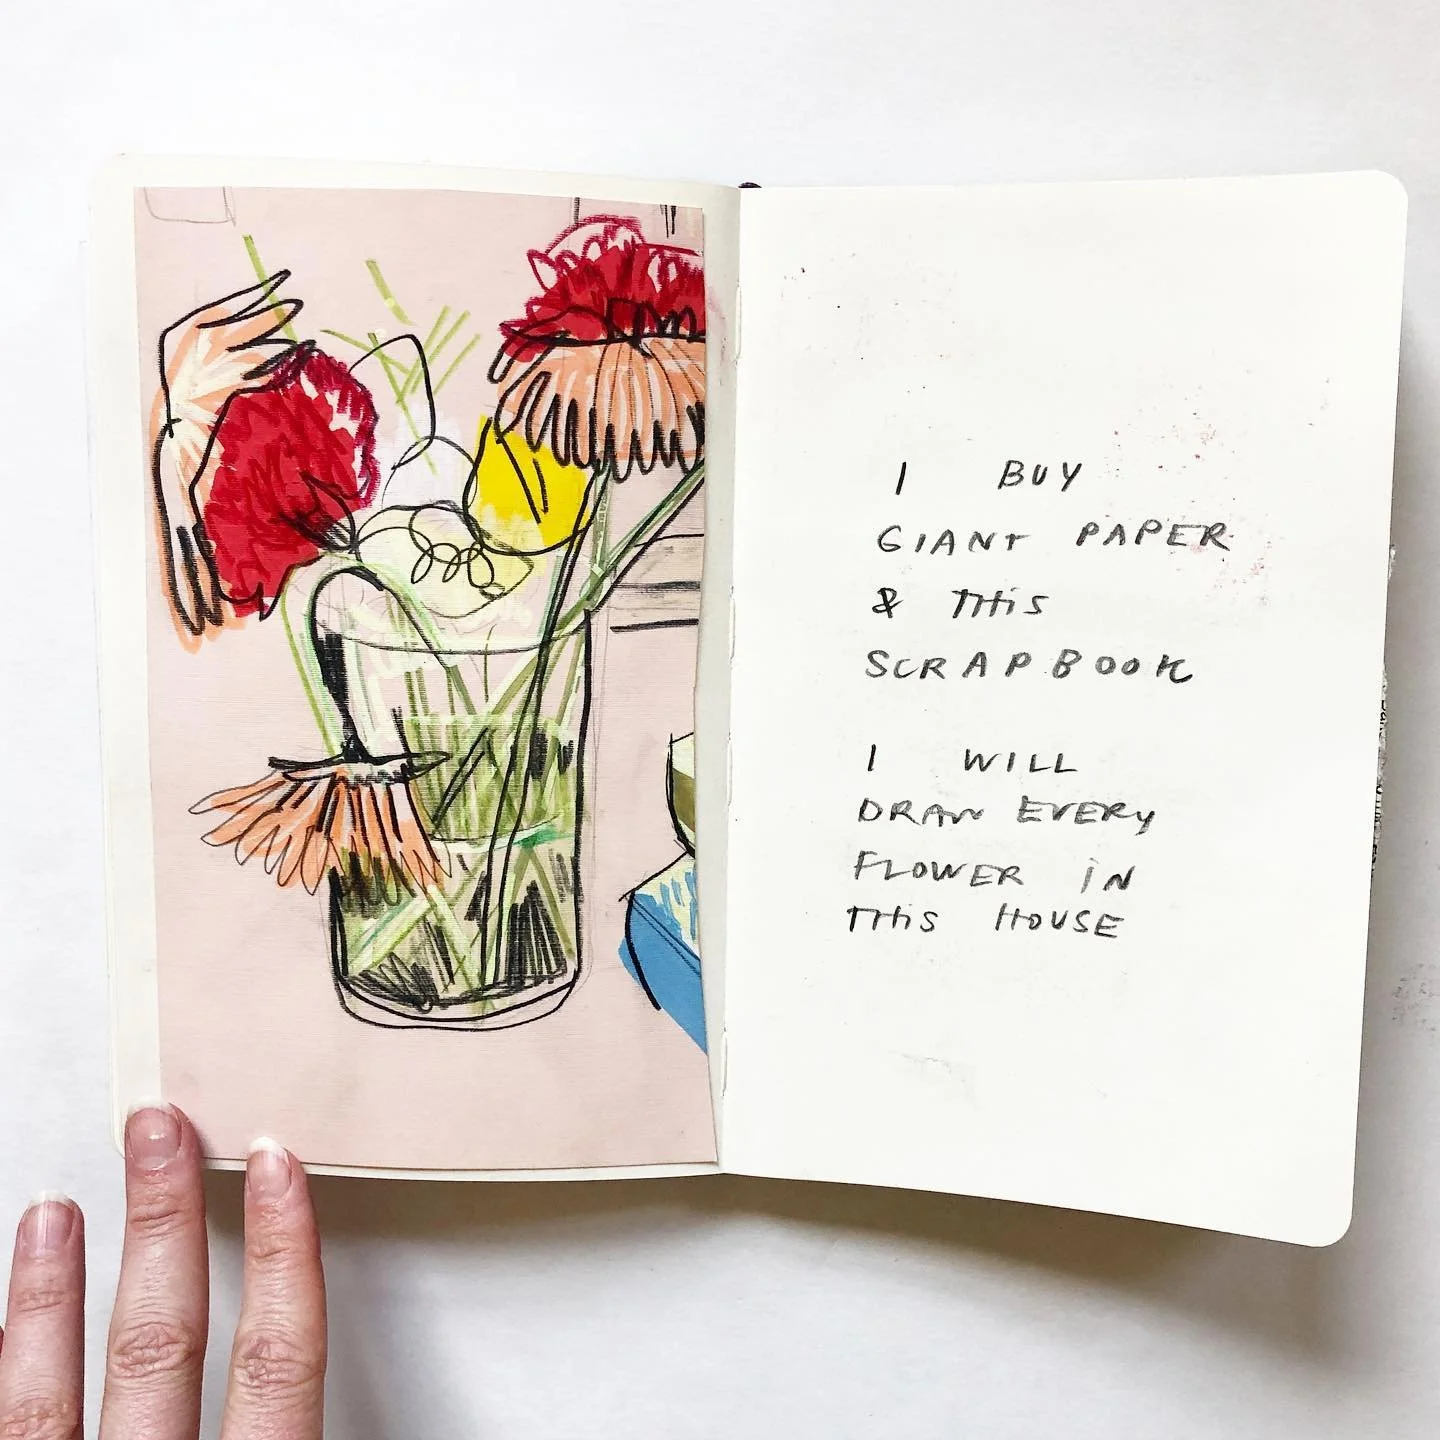 I BUY
GIANT PAPER
& THIS
SCRAPBOOK
I WILL
DRAW EVERY
FLOWER IN
THIS HOUSE